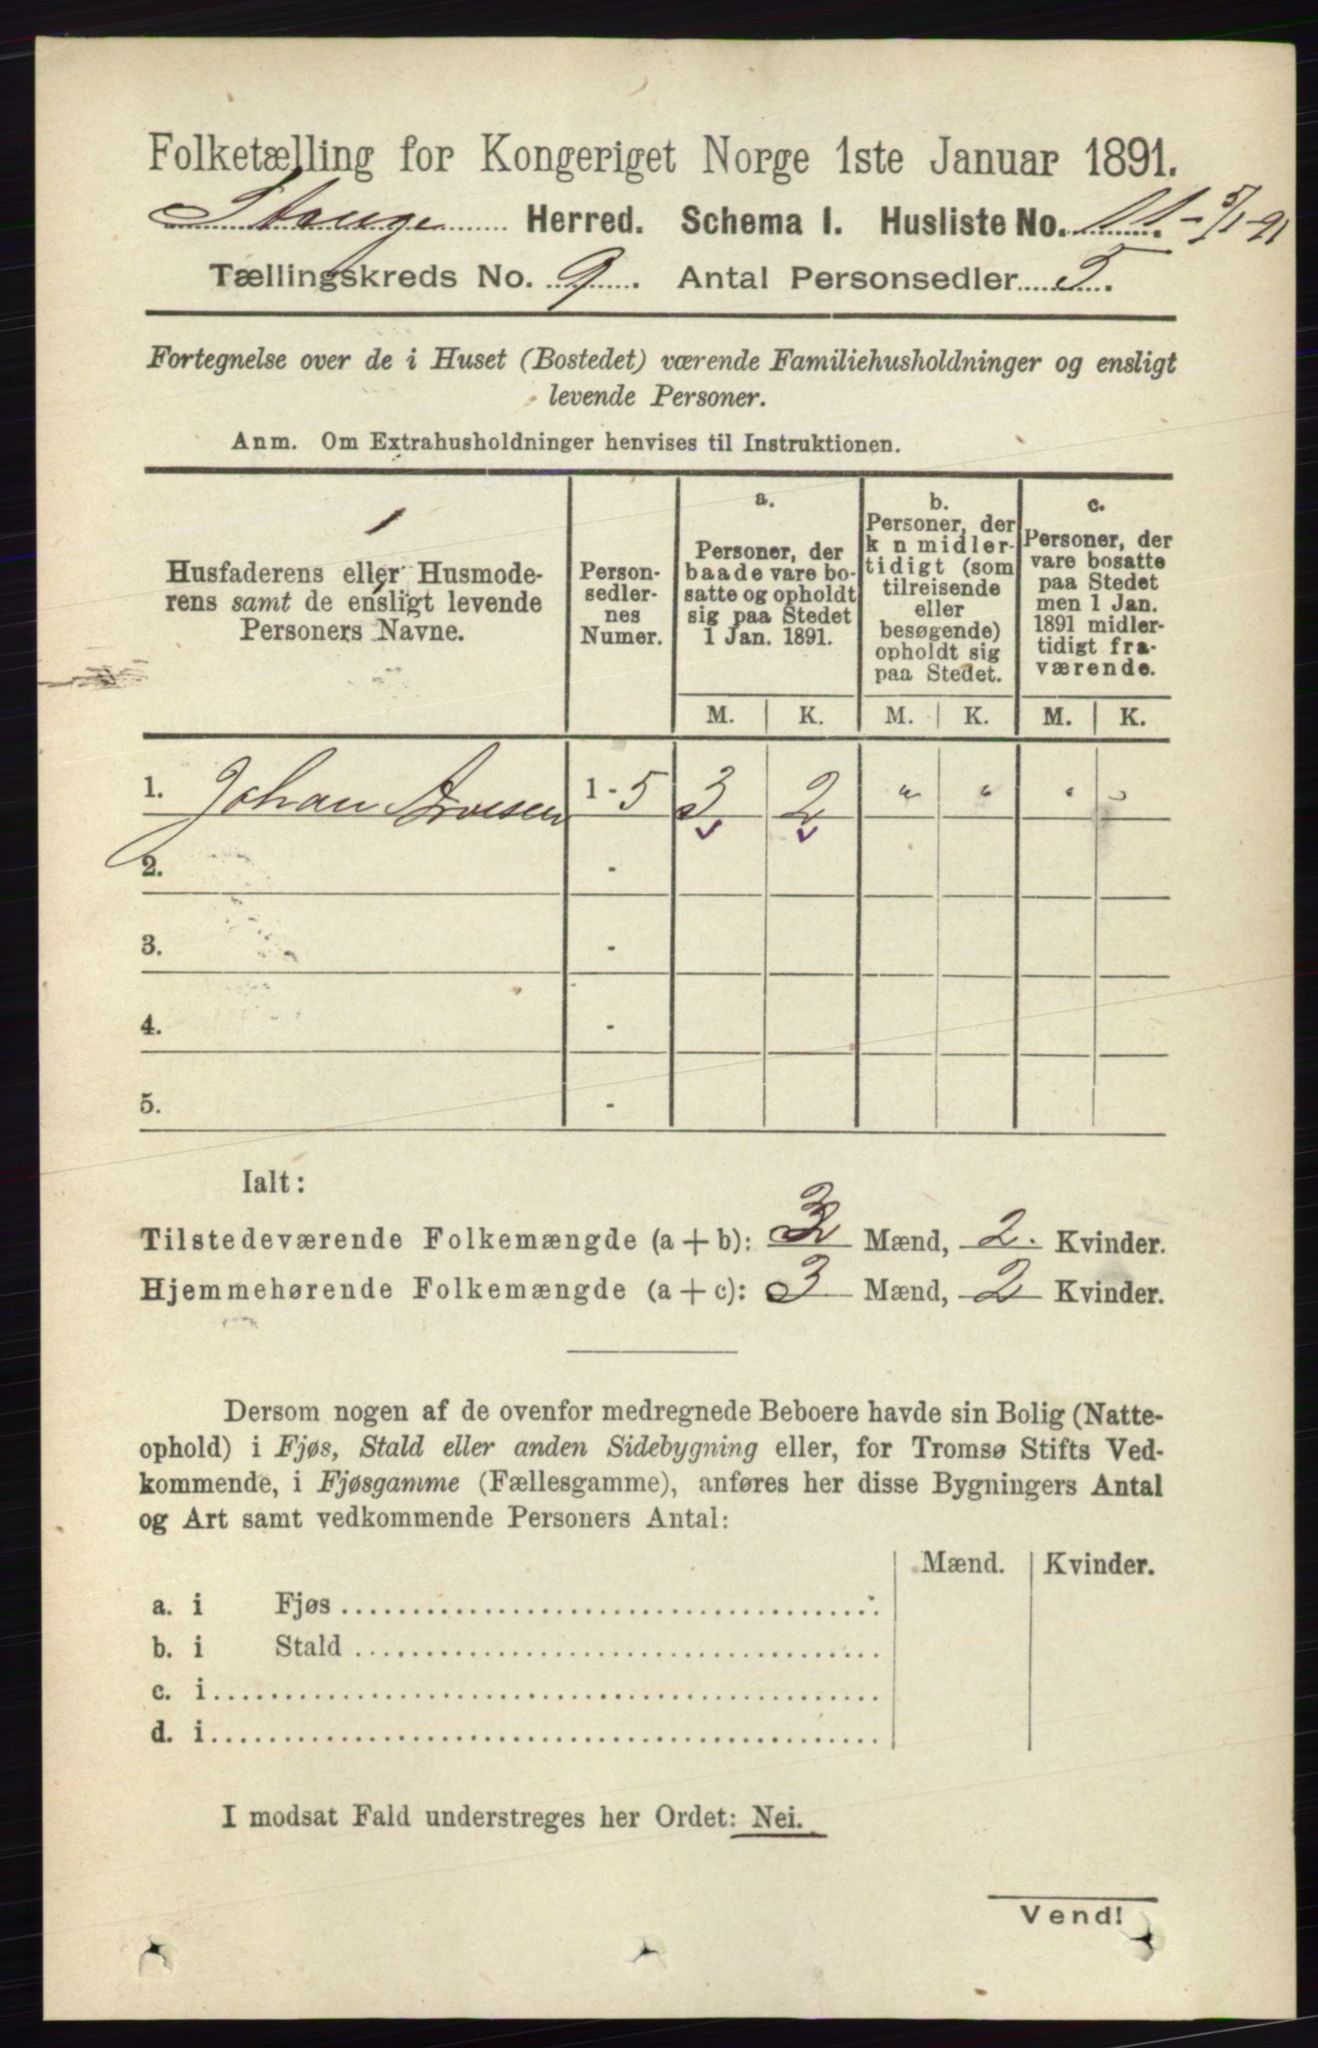 Folketælling for Kongeriget Norge 1ste Januar 1891.
Stange Herred. Schema I. Husliste No. 11. - 5/1-91
Tællingskreds No. 9. Antal Personsedler 5.
Fortegnelse over de i Huset (Bostedet) værende Familiehusholdninger og ensligt
levende Personer.
Anm. Om Extrahusholdninger henvises til Instruktionen.
Husfaderens eller Husmode-
rens samt de ensligt levende
Personers Navne.
Person-
sedler-
nes
Numer.
a.
Personer, der
baade vare bo-
satte og opholdt
sig paa Stedet
1 Jan. 1891.
b.
Personer, der
k n midler-
tidigt (som
tilreisende
eller
besøgende)
opholdt sig
paa Stedet.
c.
Personer, der
vare bosatte
paa Stedet
men 1 Jan.
1891 midler-
tidigt fra-
værende.
M. K. M. K. M. K.
1. Johan Arvesen 1 - 5 3 2 " " "
2. -
3. -
4. -
5. -
Ialt:
Tilstedeværende Folkemængde (a + b): 3 Mænd, 2. Kvinder.
Hjemmehørende Folkemængde (a + c): 3 Mænd, 2 Kvinder.
Dersom nogen af de ovenfor medregnede Beboere havde sin Bolig (Natte-
ophold) i Fjøs, Stald eller anden Sidebygning eller, for Tromsø Stifts Ved-
kommende, i Fjøsgamme (Fællesgamme), anføres her disse Bygningers Antal
og Art samt vedkommende Personers Antal:
Mænd. Kvinder.
a. i Fjøs
b. i Stald
c. i
d. i
I modsat Fald understreges her Ordet: Nei.
Vend!